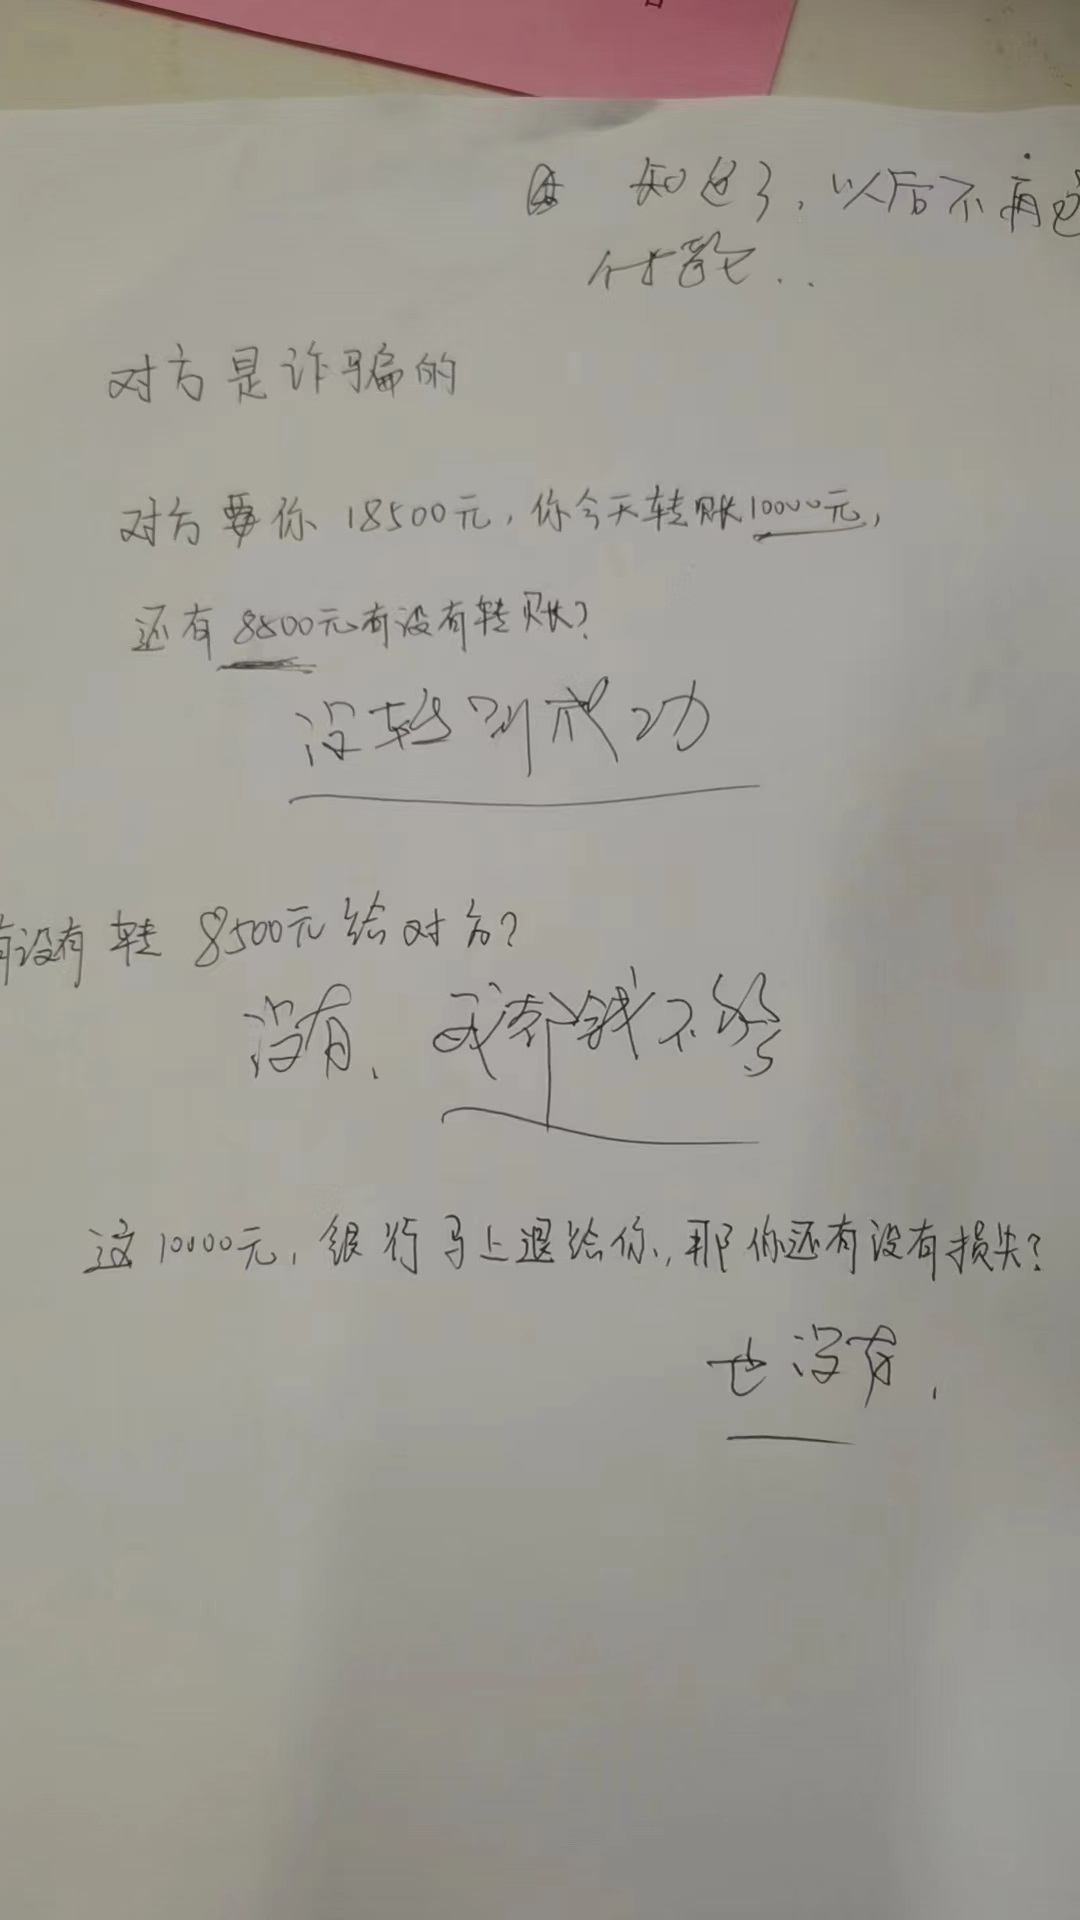 知道了，以后不再
付款..
对方是诈骗的
对方要你 18500元，你今天转账10000元，
还有8500元有没有转账？
没转 成功
有没有转 8500元给对方？
没有、 钱不够
这10000元，银行马上退给你，那你还有没有损失？
也没有、